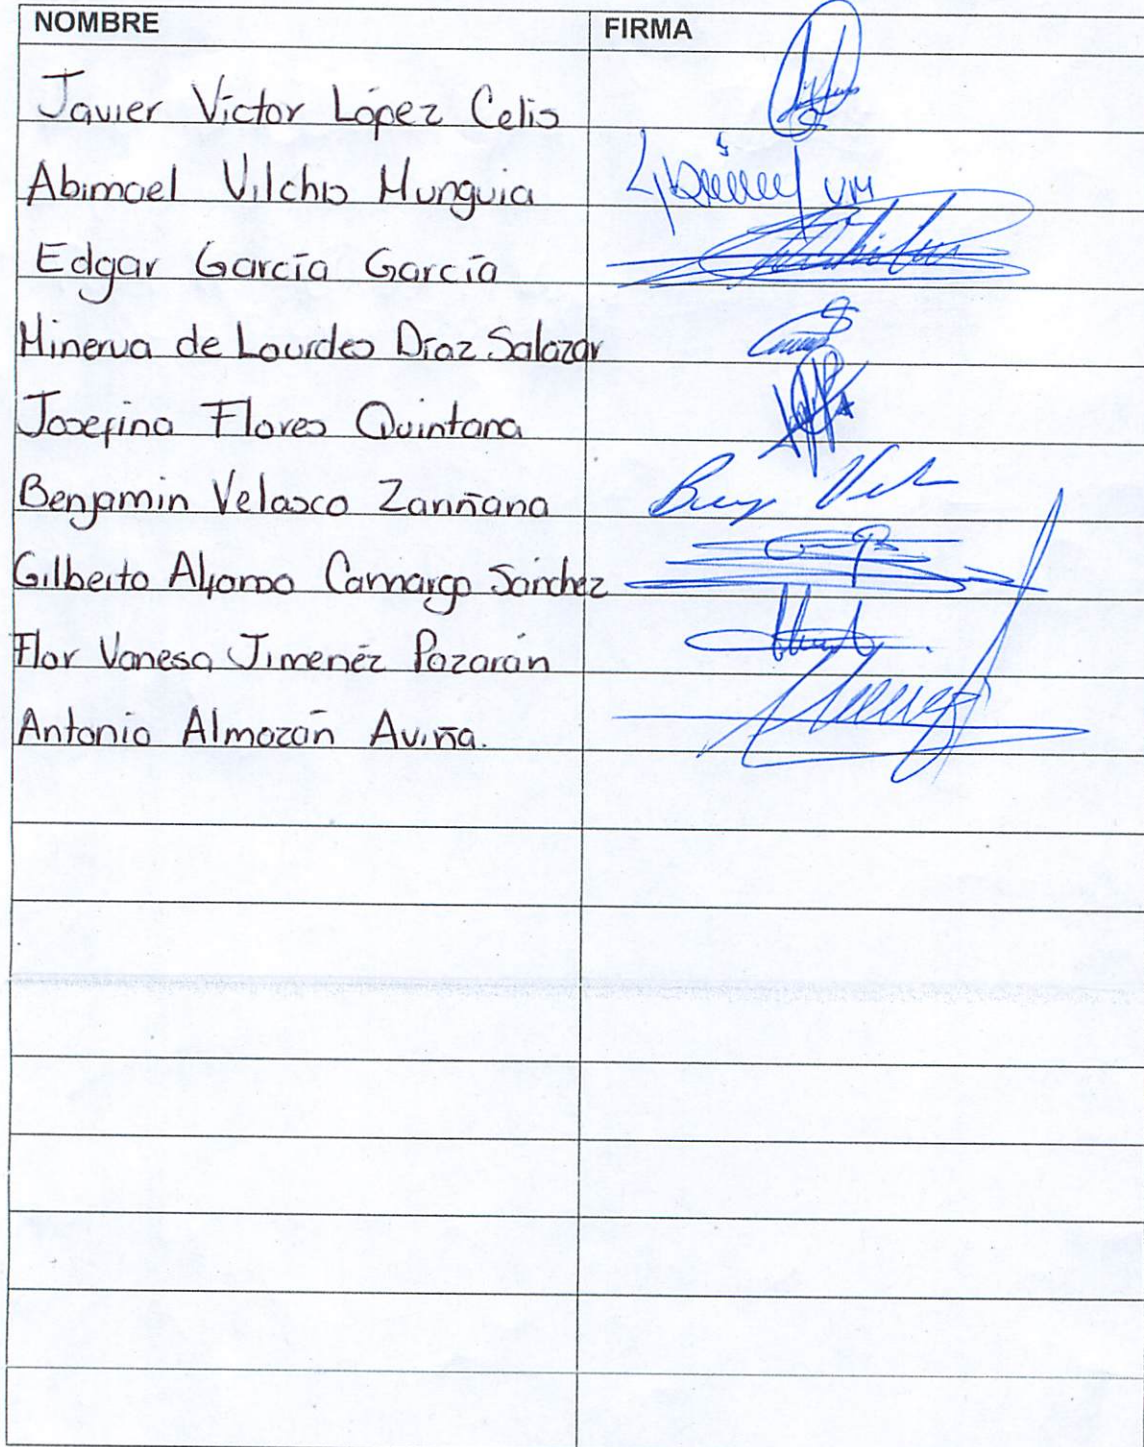 NOMBRE FIRMA
Javier Víctor López Celis
Abimael Vilchis Munguia
Edgar García García
Minerva de Lourdes Díaz Salazar
Josefina Flores Quintana
Benjamin Velasco Zanñana
Gilberto Alfonso Camargo Sánchez
Flor Vanesa Jimenéz Pazarán
Antonio Almazán Aviña.